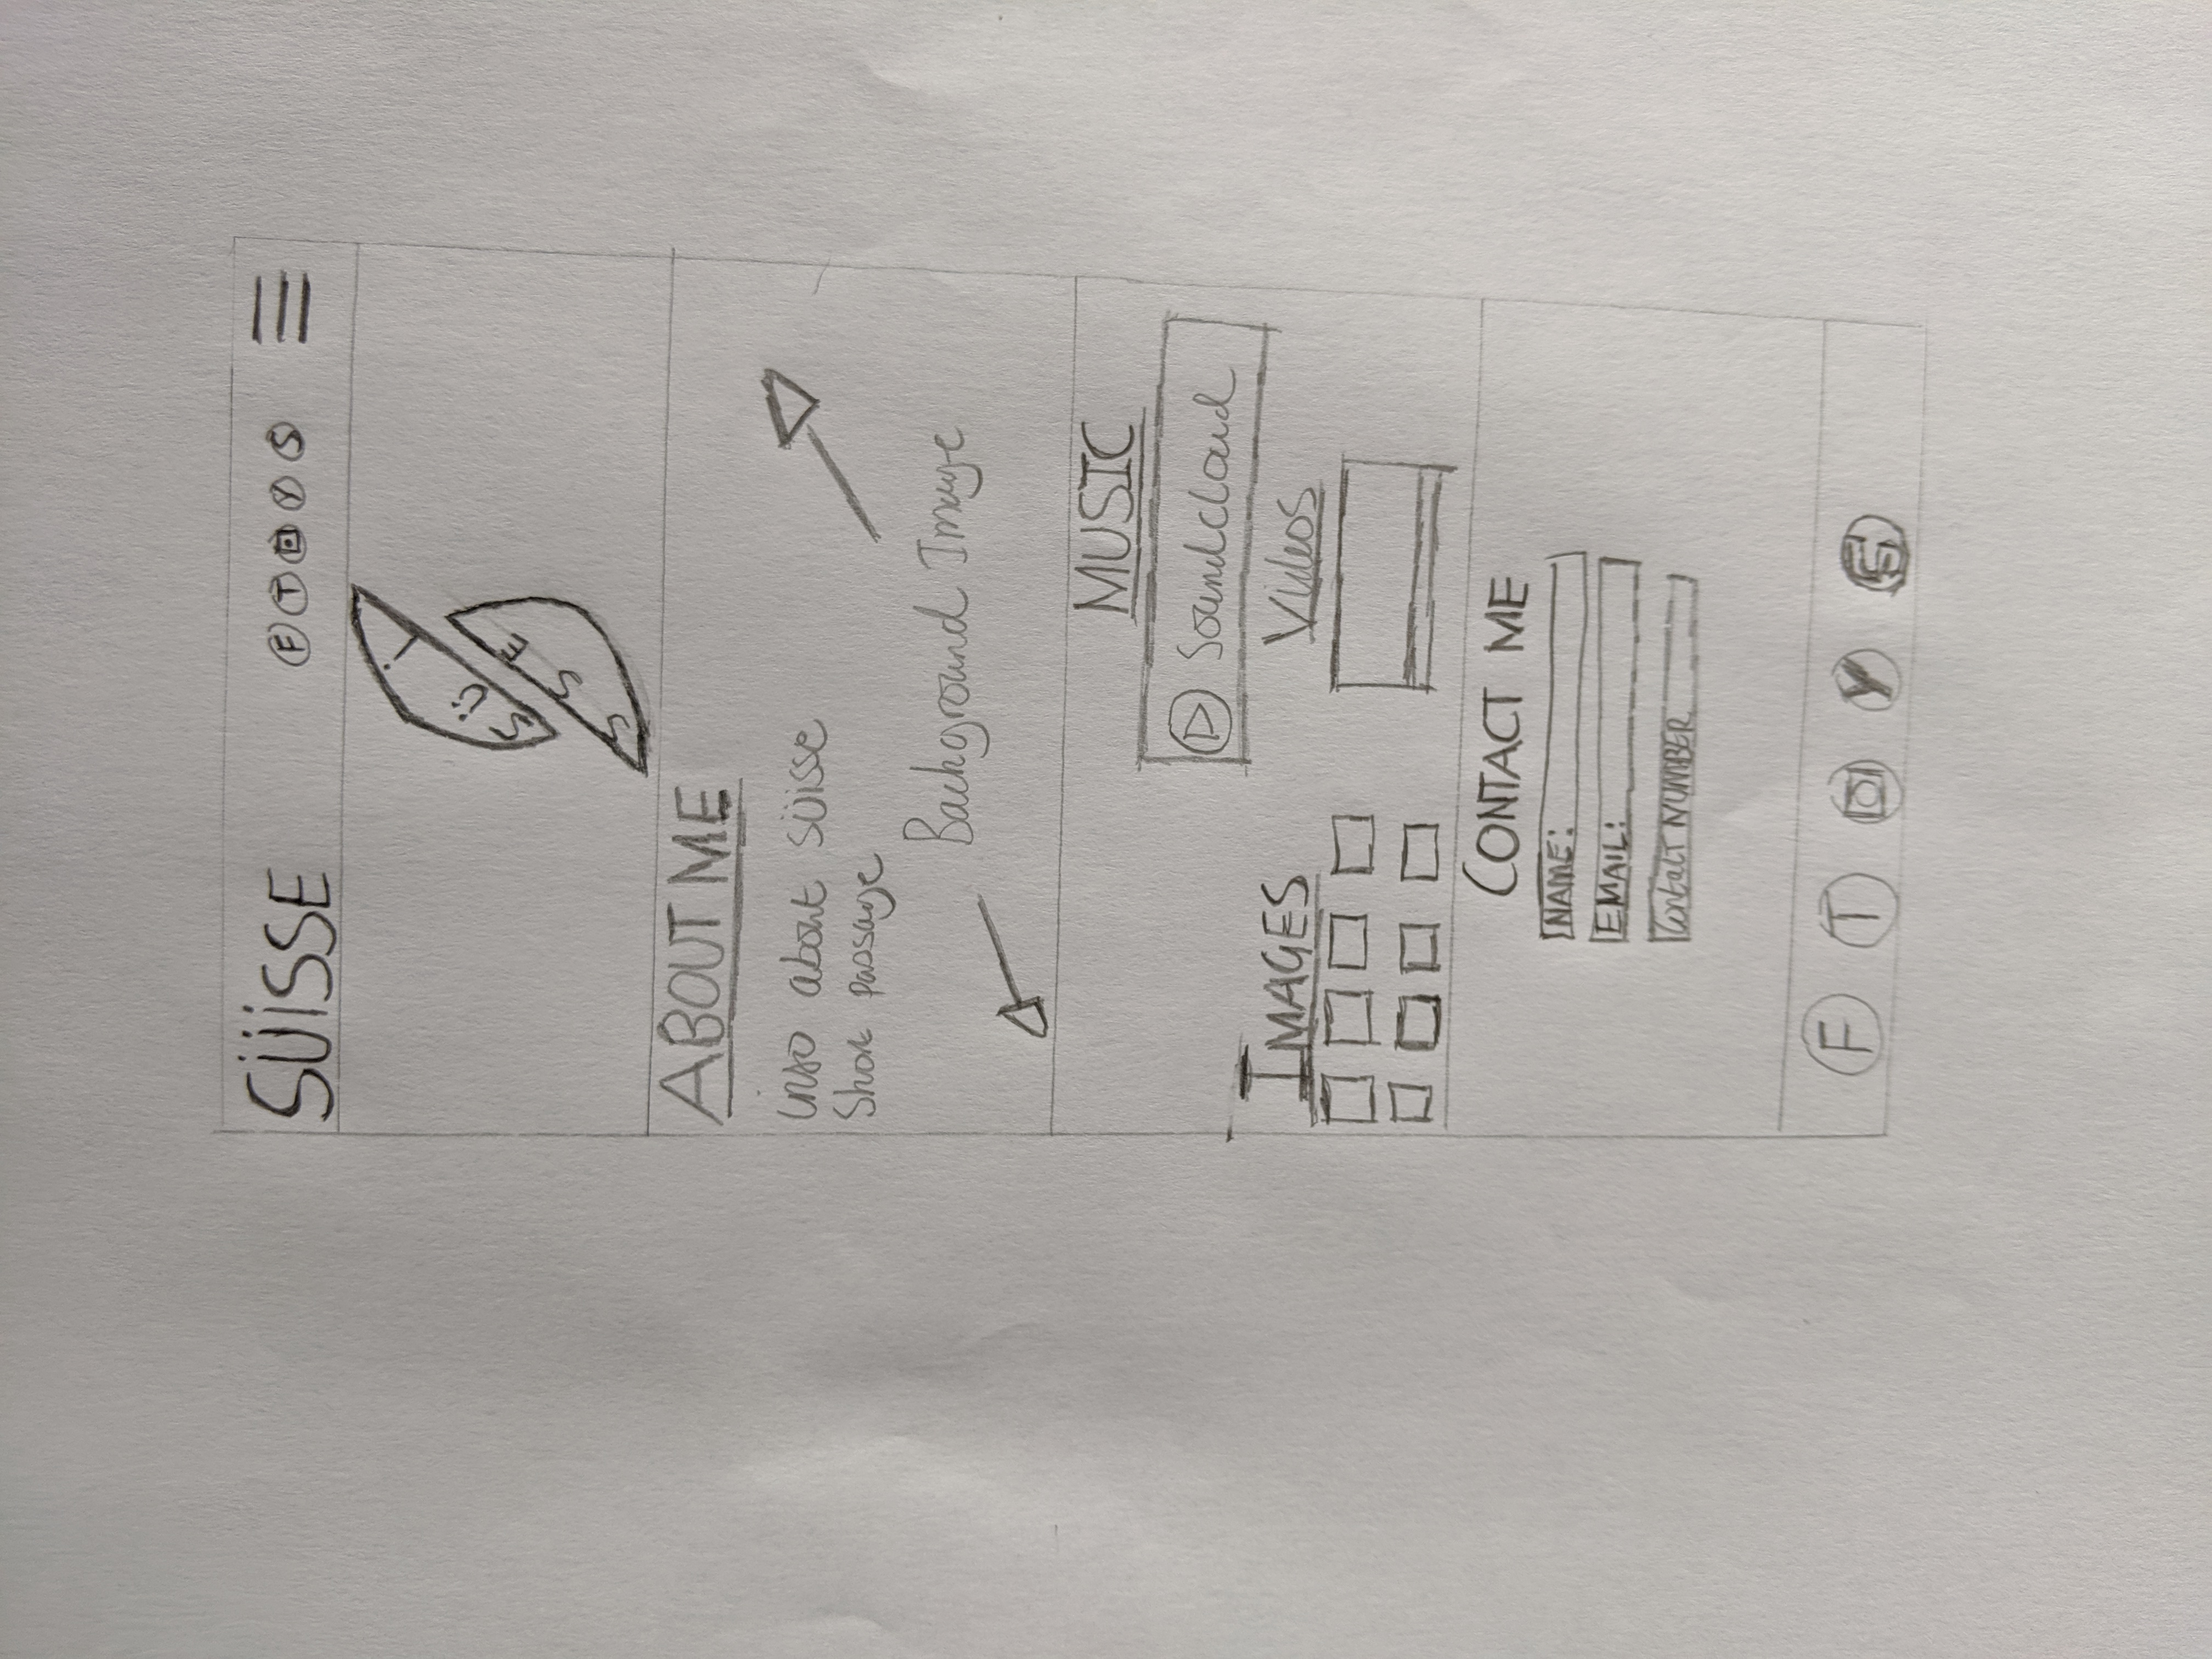 SÜISSE
F T Y S
S Ü I
S S E
ABOUT ME
info about süisse
Short passage
Background Image
MUSIC
Soundcloud
IMAGES
Videos
CONTACT ME
NAME:
EMAIL:
Contact NUMBER
F T Y S